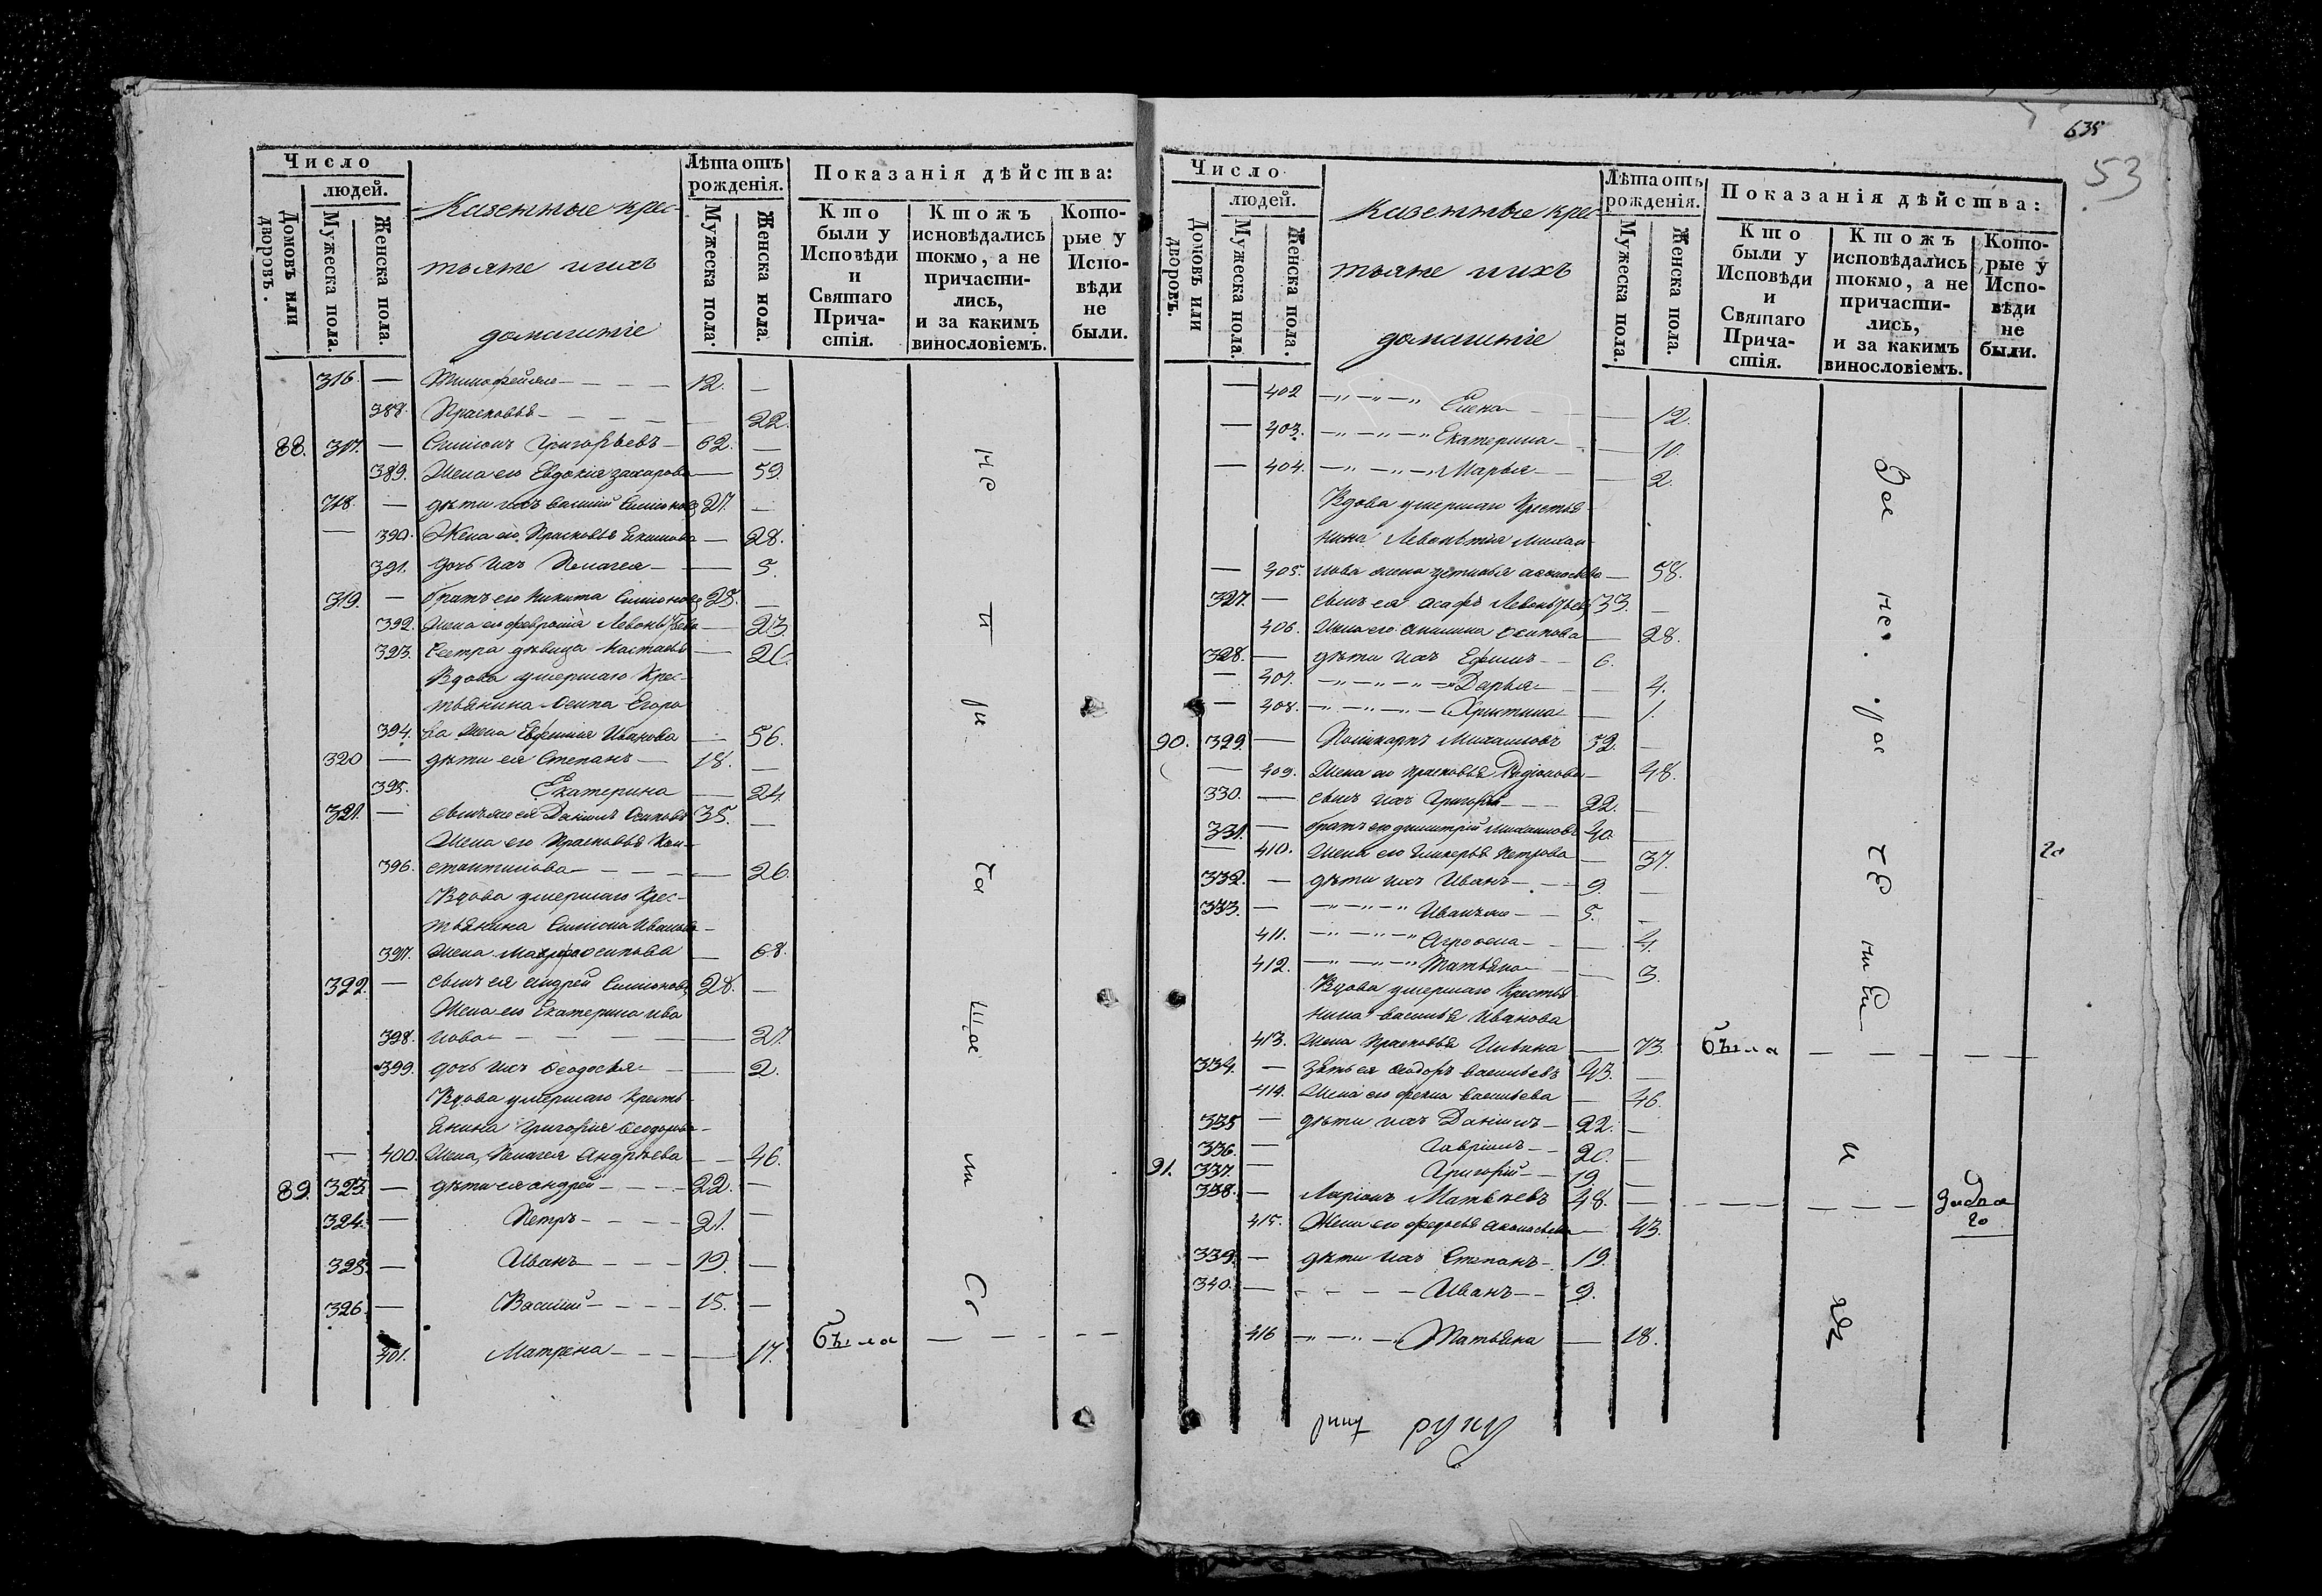 Число
людей.
Домовъ или дворовъ.
Мужеска пола.
Женска пола.
Казенные крес-
тьяне и ихъ
домашніе
Лѣта отъ рожденія.
Мужеска пола.
Женска пола.
Показанія дѣйства:
Кто были у Исповѣди и Святаго Прича-стія.
Ктожъ исповѣдались токмо, а не причасти-лись, и за какимъ винословіемъ.
Кото-рые у Испо-вѣди не были.
316. — Тимофей 12. —
388. Прасковья — 22.
88. 317. — Симіонъ Григорьевъ — 62. —
389. Жена его Евдокія Захарова — 59.
318. — дѣти ихъ Василій Симіоновъ 27. —
— 390. Жена его Прасковья Екимова — 28.
391. дочь ихъ Пелагея — 5.
319. — братъ его Никита Симіоновъ 25. —
392. Жена его Февронія Левонтьева — 23.
393. Сестра дѣвица Настасья — 20.
Вдова умершаго Крес-
тьянина Осипа Егоро
394. ва Жена Евфимія Иванова — 56.
320 — дѣти ея Степанъ — 18. —
395. Екатерина — 24.
321. — Данилъ Осиповъ 35. —
Жена его Прасковья Кон-
396. стантинова — 26.
Вдова умершаго Крес-
тьянина Симіона Иванова
397. Жена Марфа Осипова — 68.
322. — сынъ ея Андрей Симіоновъ 28. —
Жена его Екатерина Ива
398. нова — 27.
399. дочь ихъ Феодосья — 2.
Вдова умершаго Кресть-
янина Григорія Феодорова
— 400. Жена Пелагея Андрѣева — 46.
89. 323. — дѣти ея Андрей — 22. —
324. — Петръ — 21. —
325. — Иванъ — 19. —
326. — Василій — 15. —
401. Матрена — 17. была
638
53
Число
людей.
Домовъ или дворовъ.
Мужеска пола.
Женска пола.
Казенные крес-
тьяне и ихъ
домашніе
Лѣта отъ рожденія.
Мужеска пола.
Женска пола.
Показанія дѣйства:
Кто были у Исповѣди и Святаго Прича-стія.
Ктожъ исповѣдались токмо, а не причасти-лись, и за какимъ винословіемъ.
Кото-рые у Испо-вѣди не были.
— 402 —„—„—„ Елена — 12.
— 403. —„—„—„ Екатерина — 10.
— 404. —„—„—„ Марья — 2.
Вдова умершаго Крестья
нина Левонтія Михаи-
— 405. лова жена — 58.
327. — сынъ ея Асафъ Левонтьевъ 33. —
406. Жена его Акилина Осипова — 28.
328. — дѣти ихъ Ефимъ — 6.
— 407. —„—„—„ Дарья — 4.
— 408. —„—„—„ Христина — 1.
90. 329. — Поликарпъ Михаиловъ 52. —
— 409. Жена его Прасковья Родіонова — 48.
330. — сынъ ихъ Григорій — 22. —
331. — братъ его Димитрій Михаиловъ 40. —
— 410. Жена его Гликерья Петрова — 37.
332. — дѣти ихъ Иванъ — 9. —
333. — —„—„—„ Иванъ — 5. —
411. —„—„—„ — 4.
412. —„—„—„ Татьяна — 3.
Вдова умершаго Крестья
нина Василья Иванова
413. Жена Прасковья — 73. была
334. — зять ея Феодоръ Васильевъ 43. —
414. Жена его Фекла Васильева — 46.
335 — дѣти ихъ Данилъ — 22. —
336. — Гаврілъ — 20. —
337. — Григорій — 19 —
91. 338. — Ларіонъ Матвѣевъ 48. —
415. Жена его Федосья — 43.
339. — дѣти ихъ Степанъ — 19.
340. — Иванъ — 9.
416 —„—„— Татьяна — 18.
руку